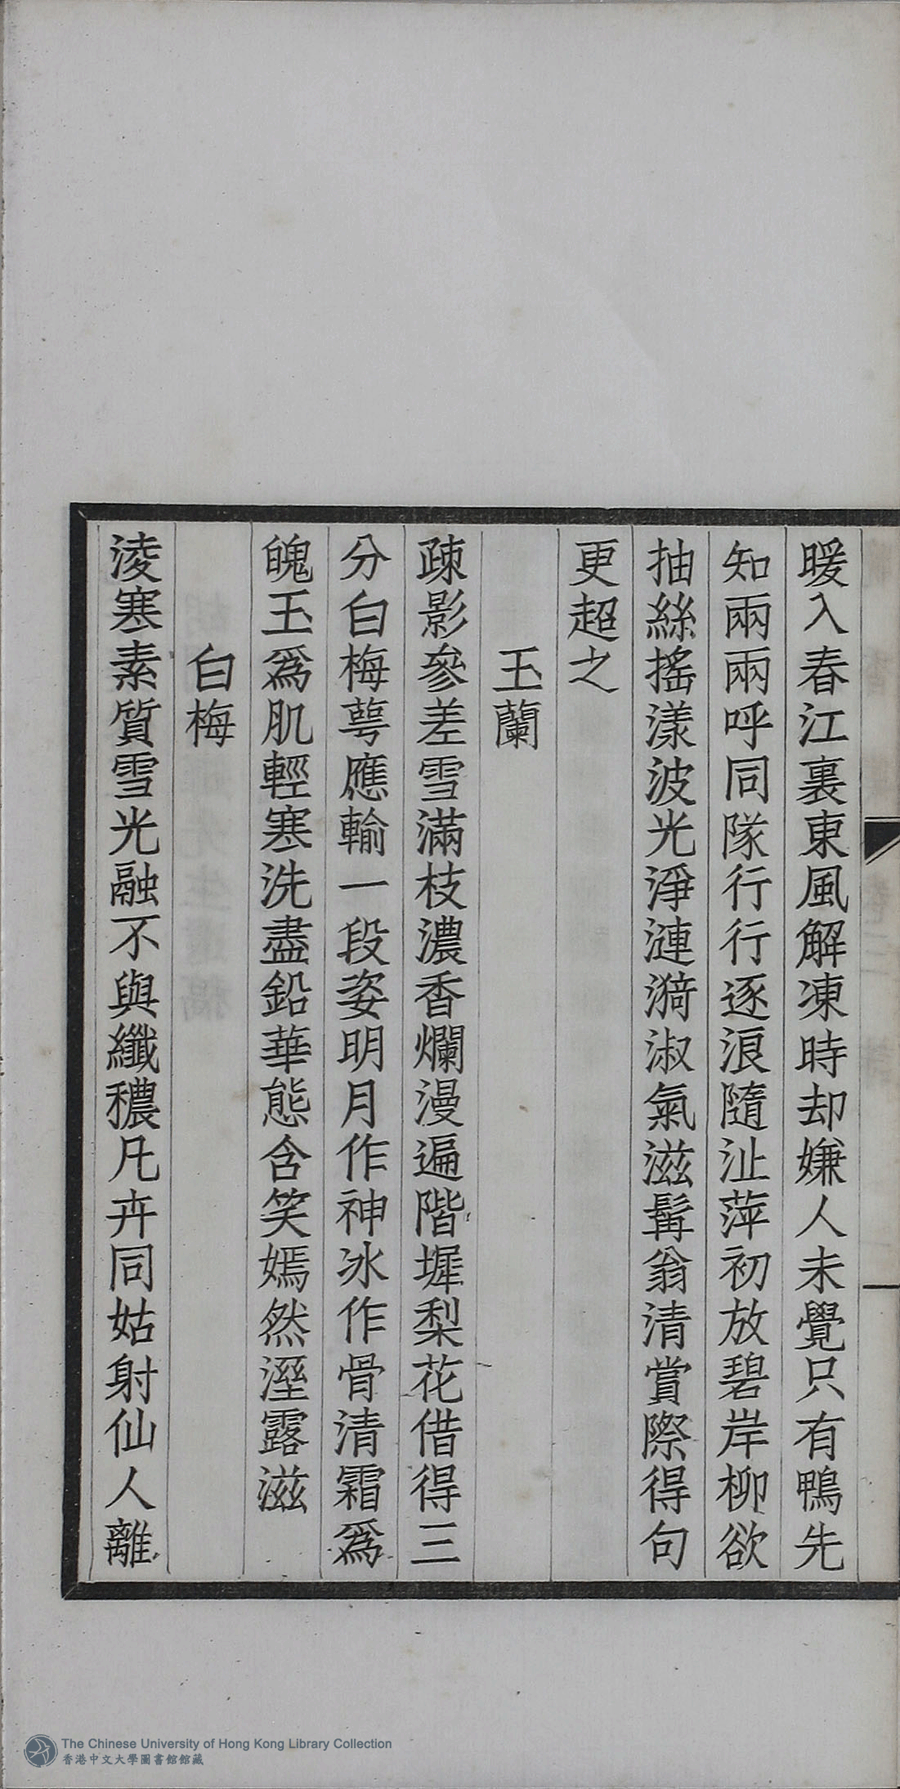 暖入春江裏東風解凍時却嫌人未覺只有鴨先
知兩兩呼同隊行行逐浪隨沚萍初放碧岸柳欲
抽絲搖漾波光淨漣漪淑氣滋髯翁清賞際得句
更超之
玉蘭
疎影參差雪滿枝濃香爛漫遍階墀梨花借得三
分白梅萼應輸一段姿明月作神冰作骨清霜爲
魄玉爲肌輕寒洗盡鉛華態含笑嫣然溼露滋
白梅
淩寒素質雪光融不與纖穠凡卉同姑射仙人離
The Chinese University of Hong Kong Library Collection
香港中文大學圖書館館藏